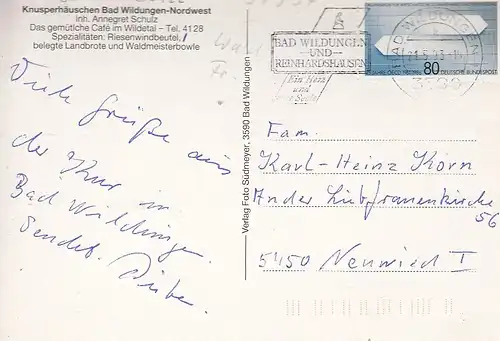 Knusperhäuschen Bad Wildungen-Nordwest
Inh. Annegret Schulz
Das gemütliche Café im Wildetal – Tel. 4128
Spezialitäten: Riesenwindbeutel,
belegte Landbrote und Waldmeisterbowle
Viele Grüße aus
der Kur in
Bad Wildungen
Sendet.
Verlag Foto Südmeyer, 3590 Bad Wildungen
BAD WILDUNGEN
UND
REINHARDSHAUSEN
Ein Herz
und
eine Seele
BAD WILDUNGEN
3590
80
DEUTSCHE BUNDESPOST
Fam.
Karl-Heinz Korn
An der Liebfrauenkirche
56
5450 Neuwied 1